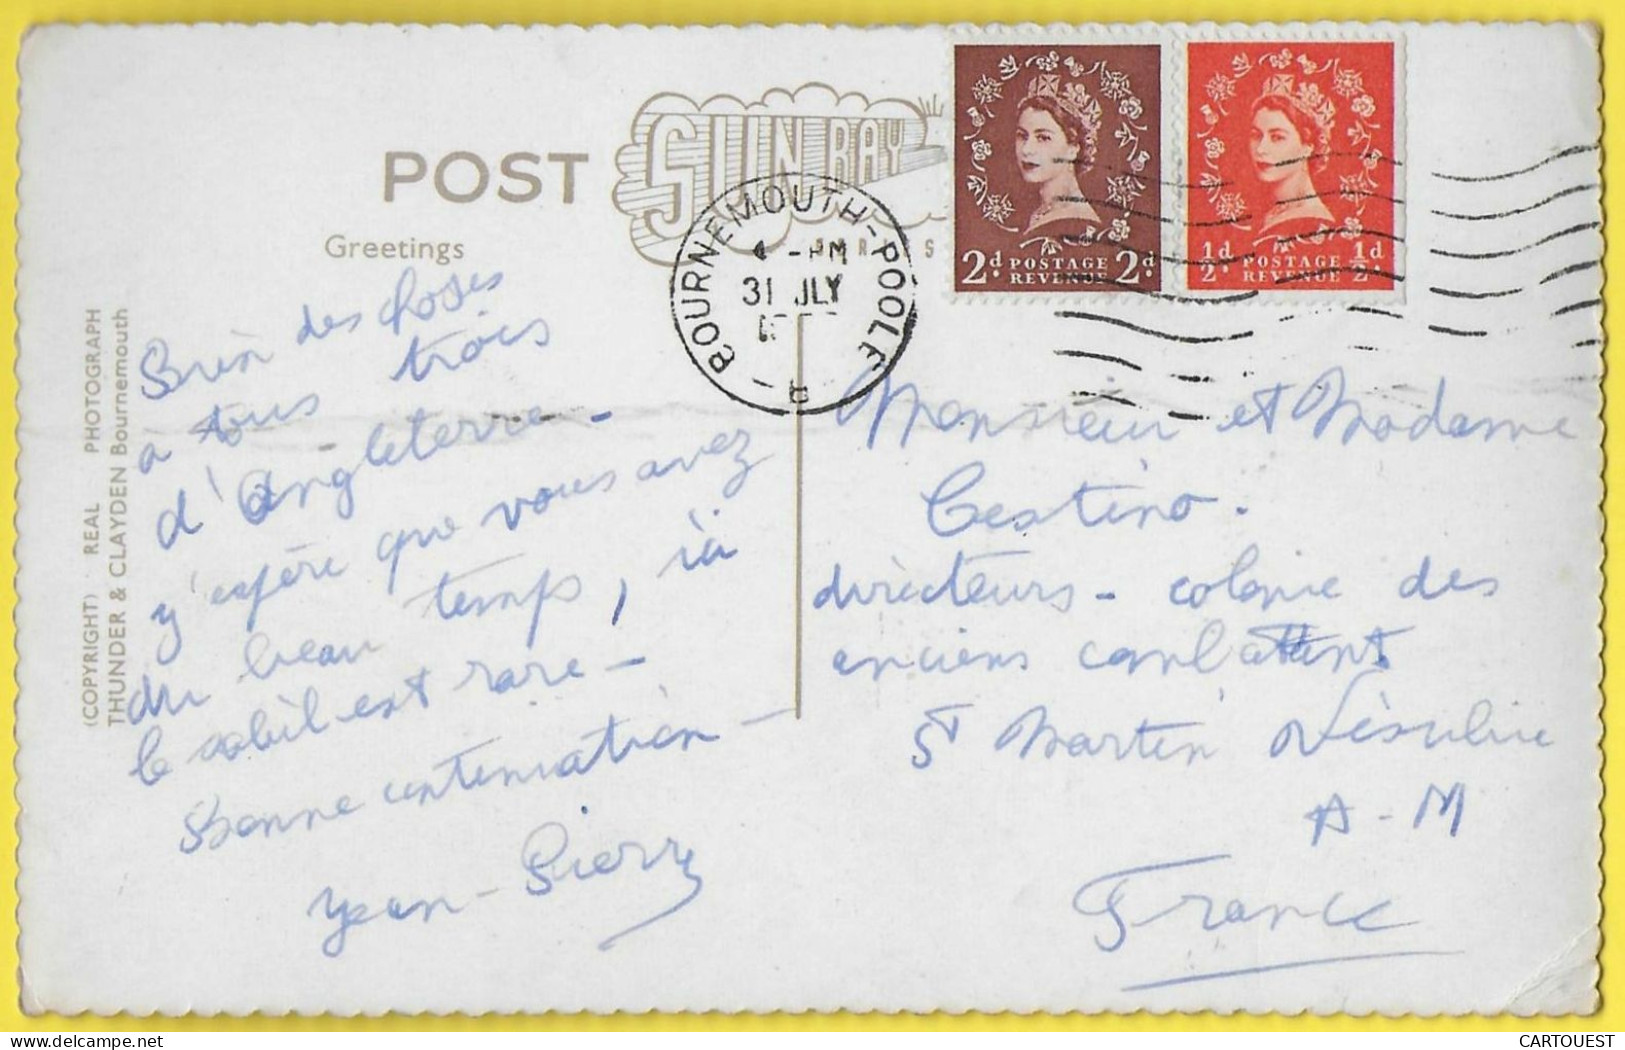 POST
SUN RAY
SERIES
Greetings
(COPYRIGHT) REAL PHOTOGRAPH
THUNDER & CLAYDEN Bournemouth
BOURNEMOUTH-POOLE
4 - PM
31 JLY
2d. POSTAGE REVENUE 2d.
½d. POSTAGE REVENUE ½d.
Bien des choses
a tous trois
d'Angleterre -
j'espère que vous avez
du beau temps, ici
le soleil est rare -
Bonne continuation -
Jean-Pierre
Monsieur et Madame
Cestino.
directeurs - colonie des
anciens combattants
St Martin Vésubie
A-M
France
CARTOUEST